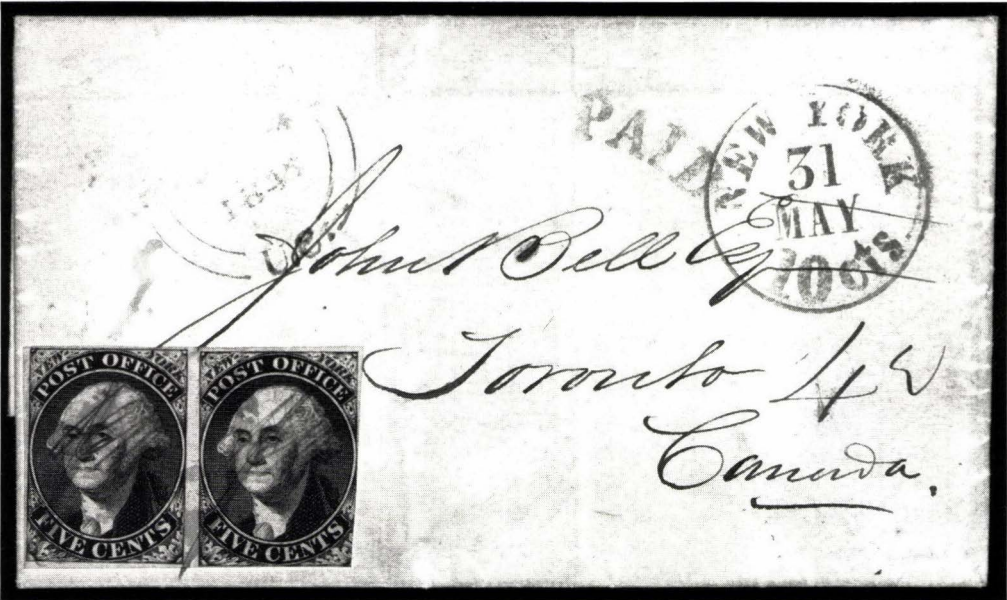 PAID
NEW YORK
31
MAY
10cts
John Bell Esq
Toronto
Canada.
NEW YORK
POST OFFICE
FIVE CENTS
NEW YORK
POST OFFICE
FIVE CENTS